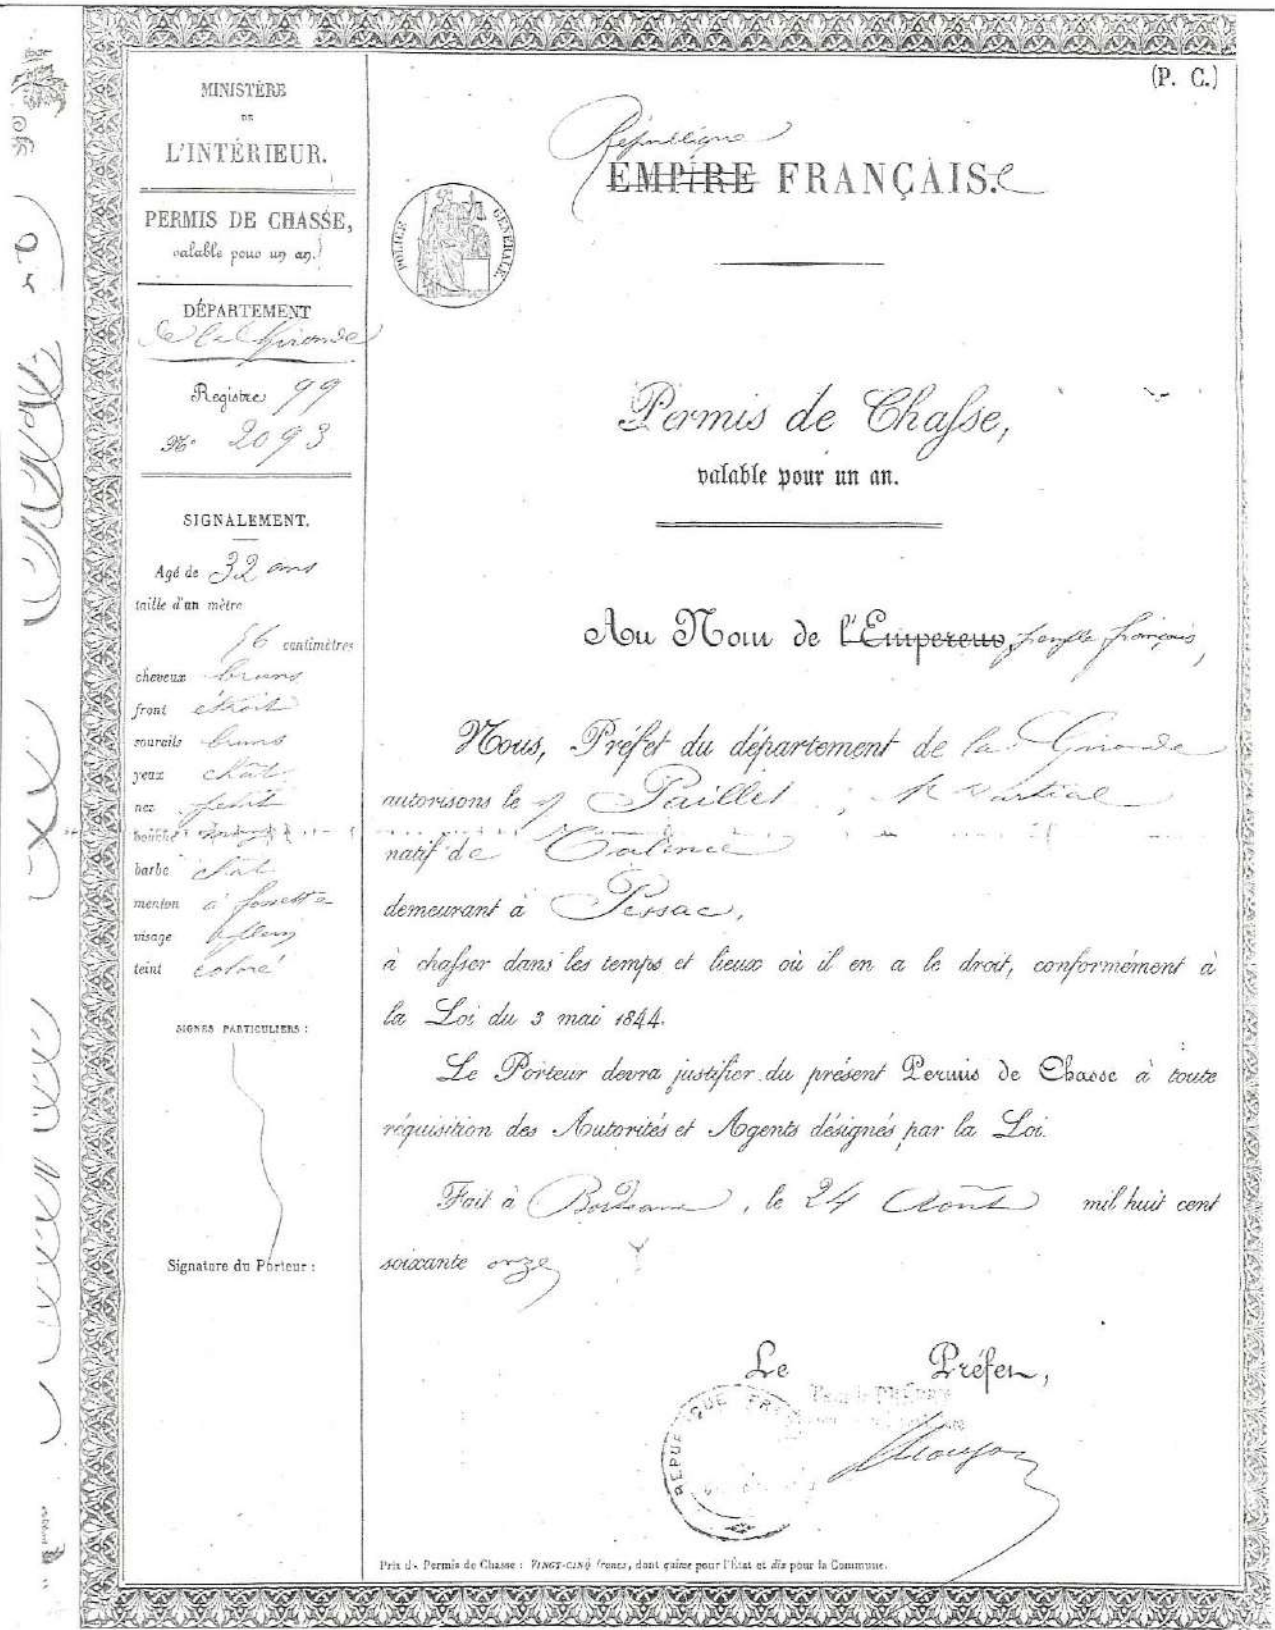 (P. C.)
MINISTÈRE
DE
L'INTÉRIEUR.
PERMIS DE CHASSE,
valable pour un an.
DÉPARTEMENT
de la Gironde
Registre 99
N° 2093
SIGNALEMENT.
Agé de 32 ans
taille d'un mètre
56 centimètres
cheveux bruns
front étroit
sourcils bruns
yeux chat.
nez petit
bouche
barbe chat
menton à fossette
visage
teint coloré
SIGNES PARTICULIERS :
Signature du Porteur :
POLICE GÉNÉRALE.
République
EMPIRE FRANÇAIS.e
Permis de Chasse,
valable pour un an.
Au Nom de l'Empereur, peuple français,
Nous, Préfet du département de la Gironde
autorisons le Sr Paillet, Martial
natif de Talence
demeurant à Pessac,
à chasser dans les temps et lieux où il en a le droit, conformément à
la Loi du 3 mai 1844.
Le Porteur devra justifier du présent Permis de Chasse à toute
réquisition des Autorités et Agents désignés par la Loi.
Fait à Bordeaux, le 24 Août mil huit cent
soixante onze
Le Préfet,
REPUBLIQUE FRA
Prix du Permis de Chasse : VINGT-CINQ francs, dont quinze pour l'État et dix pour la Commune.